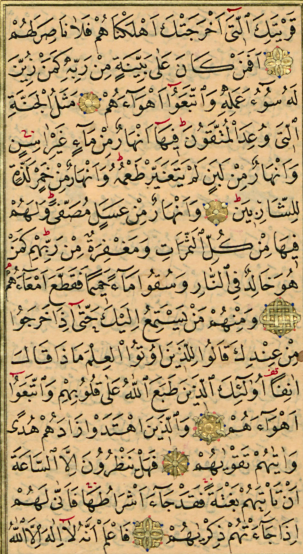 قَرْيَتِكَ الَّتِي أَخْرَجَتْكَ أَهْلَكْنَاهُمْ فَلَا نَاصِرَ لَهُمْ
أَفَمَنْ كَانَ عَلَى بَيِّنَةٍ مِنْ رَبِّهِ كَمَنْ زُيِّنَ
لَهُ سُوءُ عَمَلِهِ وَاتَّبَعُوا أَهْوَاءَهُمْ مَثَلُ الْجَنَّةِ
الَّتِي وُعِدَ الْمُتَّقُونَ فِيهَا أَنْهَارٌ مِنْ مَاءٍ غَيْرِ آسِنٍ
وَأَنْهَارٌ مِنْ لَبَنٍ لَمْ يَتَغَيَّرْ طَعْمُهُ وَأَنْهَارٌ مِنْ خَمْرٍ لَذَّةٍ
لِلشَّارِبِينَ وَأَنْهَارٌ مِنْ عَسَلٍ مُصَفًّى وَلَهُمْ
فِيهَا مِنْ كُلِّ الثَّمَرَاتِ وَمَغْفِرَةٌ مِنْ رَبِّهِمْ كَمَنْ
هُوَ خَالِدٌ فِي النَّارِ وَسُقُوا مَاءً حَمِيمًا فَقَطَّعَ أَمْعَاءَهُمْ
وَمِنْهُمْ مَنْ يَسْتَمِعُ إِلَيْكَ حَتَّى إِذَا خَرَجُوا
مِنْ عِنْدِكَ قَالُوا لِلَّذِينَ أُوتُوا الْعِلْمَ مَاذَا قَالَ
آنِفًا أُولَئِكَ الَّذِينَ طَبَعَ اللَّهُ عَلَى قُلُوبِهِمْ وَاتَّبَعُوا
أَهْوَاءَهُمْ وَالَّذِينَ اهْتَدَوْا زَادَهُمْ هُدًى
وَآتَاهُمْ تَقْوَاهُمْ فَهَلْ يَنْظُرُونَ إِلَّا السَّاعَةَ
أَنْ تَأْتِيَهُمْ بَغْتَةً فَقَدْ جَاءَ أَشْرَاطُهَا فَأَنَّى لَهُمْ
إِذَا جَاءَتْهُمْ ذِكْرَاهُمْ فَاعْلَمْ أَنَّهُ لَا إِلَهَ إِلَّا اللَّهُ